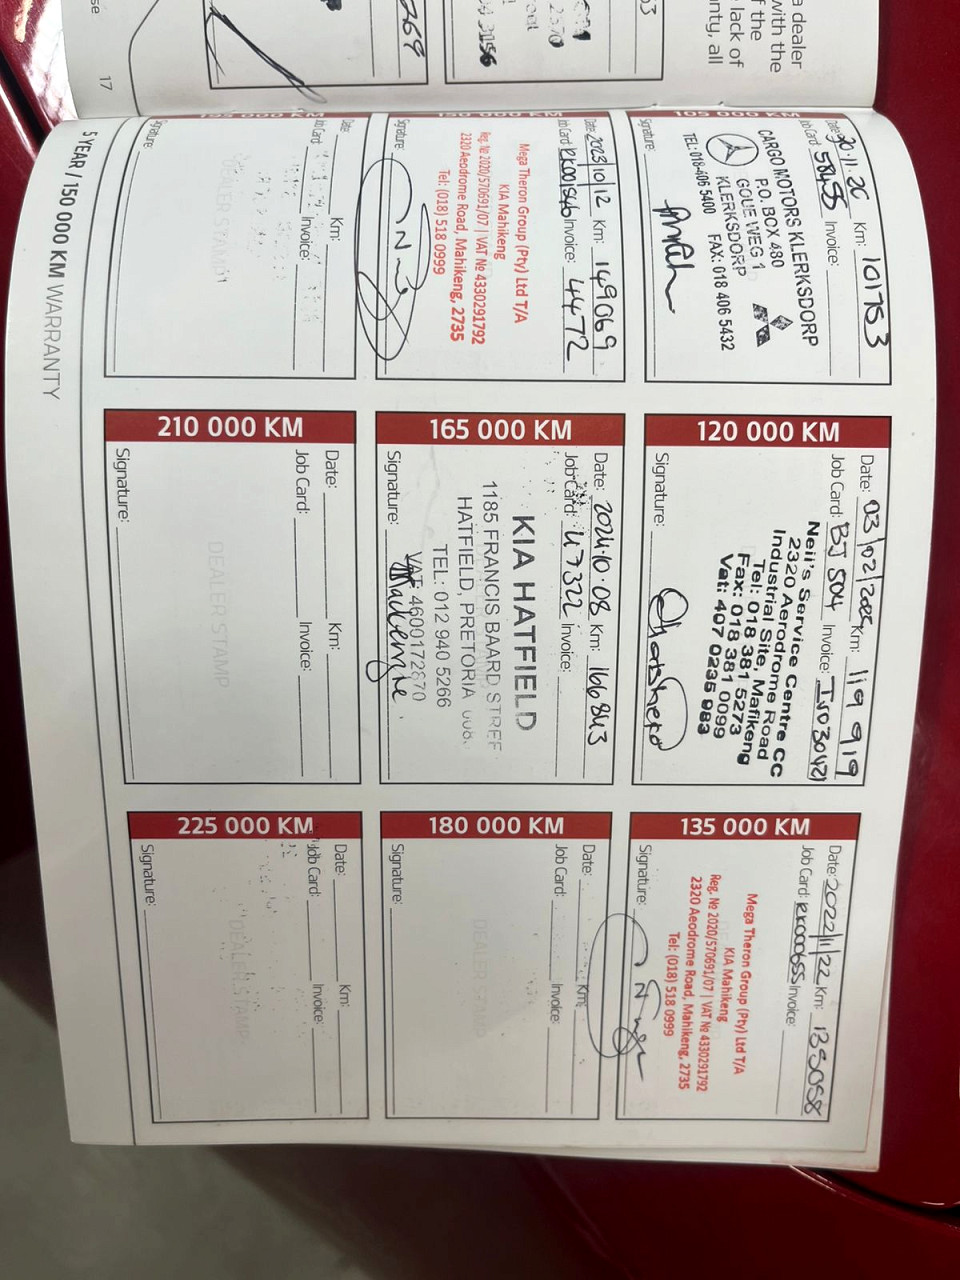 a dealer
with the
f the
lack of
nty, all
17
105 000 KM
Date: 20.11.20 Km: 101753
Job Card: 58455 Invoice:
CARGO MOTORS KLERKSDORP
P.O. BOX 480
GOUE WEG 1
KLERKSDORP
TEL: 018-406 5400 FAX: 018 406 5432
Signature:
120 000 KM
Date: 03/02/2022 Km: 119 919
Job Card: BJ504 Invoice: IN030421
Neil's Service Centre CC
2320 Aerodrome Road
Industrial Site, Mafikeng
Tel: 018 381 5273
Fax: 018 381 0099
Vat: 407 0235 983
Signature:
135 000 KM
Date: 2022/11/22 Km: 133058
Job Card: RK000655 Invoice:
Mega Theron Group (Pty) Ltd T/A
KIA Mahikeng
Reg. № 2020/570691/07 | VAT № 4330291792
2320 Aeodrome Road, Mahikeng, 2735
Tel: (018) 518 0999
Signature:
150 000 KM
Date: 2023/10/12 Km: 149069
Job Card: RK001546 Invoice: 4472
Mega Theron Group (Pty) Ltd T/A
KIA Mahikeng
Reg. № 2020/570691/07 | VAT № 4330291792
2320 Aeodrome Road, Mahikeng, 2735
Tel: (018) 518 0999
Signature:
165 000 KM
Date: 2024.10.08 Km: 166843
Job Card: 47322 Invoice:
KIA HATFIELD
1185 FRANCIS BAARD STREE
HATFIELD, PRETORIA
TEL: 012 940 5266
VAT: 4600172870
Signature:
180 000 KM
Date: Km:
Job Card: Invoice:
DEALER STAMP
Signature:
195 000 KM
Date: Km:
Job Card: Invoice:
DEALER STAMP
Signature:
210 000 KM
Date: Km:
Job Card: Invoice:
DEALER STAMP
Signature:
225 000 KM
Date: Km:
Job Card: Invoice:
DEALER STAMP
Signature:
5 YEAR / 150 000 KM WARRANTY